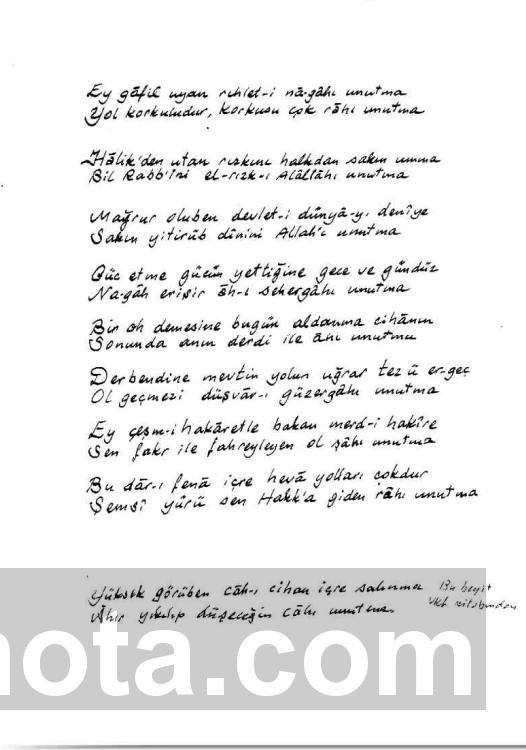 Ey gâfil uyan rıhlet-i nâ-gâhı unutma
Yol korkuludur, korkusu çok râhı unutma
Hâlik'den utan rızkını halkdan sakın umma
Bil Rabb'ini el-rızk-ı Alâllâhı unutma
Mağrur oluben devlet-i dünyâ-yı denîye
Sakın yitirüb dînini Allah'ı unutma
Güc etme gücün yettiğine gece ve gündüz
Na-gâh erişir âh-ı sehergâhı unutma
Bir oh demesine bugün aldanma cihânın
Sonunda anın derdi ile âhı unutma
Derbendine mevtin yolun uğrar tez ü er-geç
Ol geçmezi düşvâr-ı güzergâhı unutma
Ey çeşm-i hakâretle bakan merd-i hakîre
Sen fakr ile fahreyleyen ol şâhı unutma
Bu dâr-ı fenâ içre hevâ yolları çokdur
Şemsî yürü sen Hakk'a giden râhı unutma
Yüksek görüben câh-ı cihan içre salınma Bu beyit
Âhir yıkılıp düşeceğin câhı unutma
nota.com